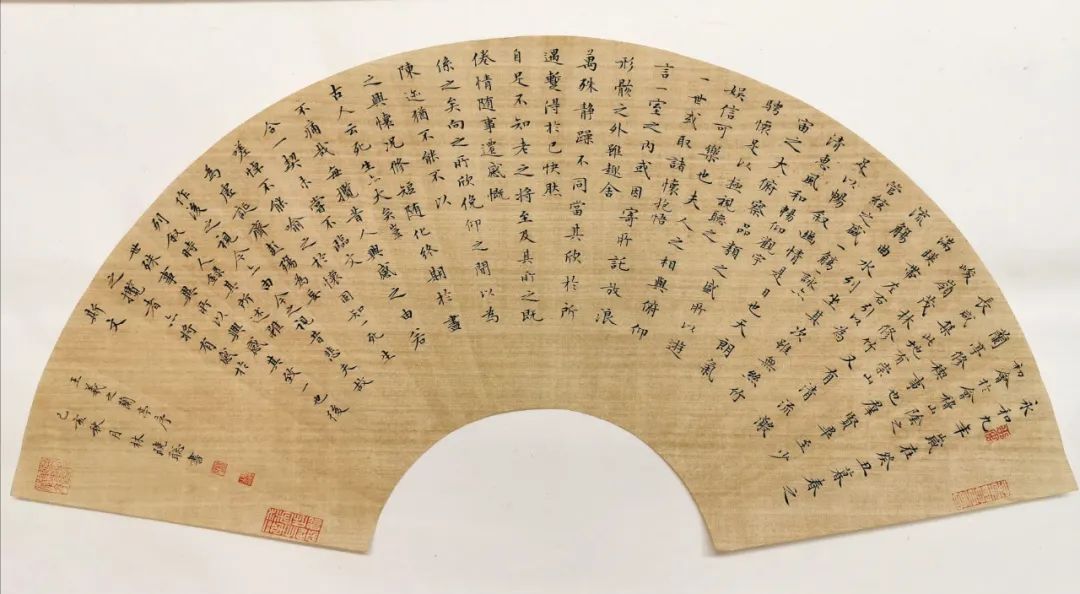 永和九年歲在癸丑暮春之
初會於會稽山陰之
蘭亭修禊事也群賢畢至少
長咸集此地有崇山
峻嶺茂林修竹又有清流激
湍暎帶左右引以為
流觴曲水列坐其次雖無絲竹
管絃之盛一觴一詠亦
足以暢叙幽情是日也天朗氣
清惠風和暢仰觀宇
宙之大俯察品類之盛所以遊
騁懷足以極視聽之
娛信可樂也夫人之相與俯仰
一世或取諸懷抱悟
言一室之內或因寄所託放浪
形骸之外雖趣舍
萬殊靜躁不同當其欣於所
遇暫得於己快然
自足不知老之將至及其所之既
倦情隨事遷感慨
係之矣向之所欣俛仰之間以為
陳迹猶不能不以
之興懷況修短隨化終期於盡
古人云死生亦大矣豈
不痛哉每攬昔人興感之由若
合一契未嘗不臨文
嗟悼不能喻之於懷固知一死生
為虛誕齊彭殤為妄
作後之視今亦由今之視昔悲夫故
列叙時人錄其所述雖
世殊事異所以興懷其致一也後
之攬者亦將有感於
斯文
王羲之蘭亭序
己亥秋月林曉聰書